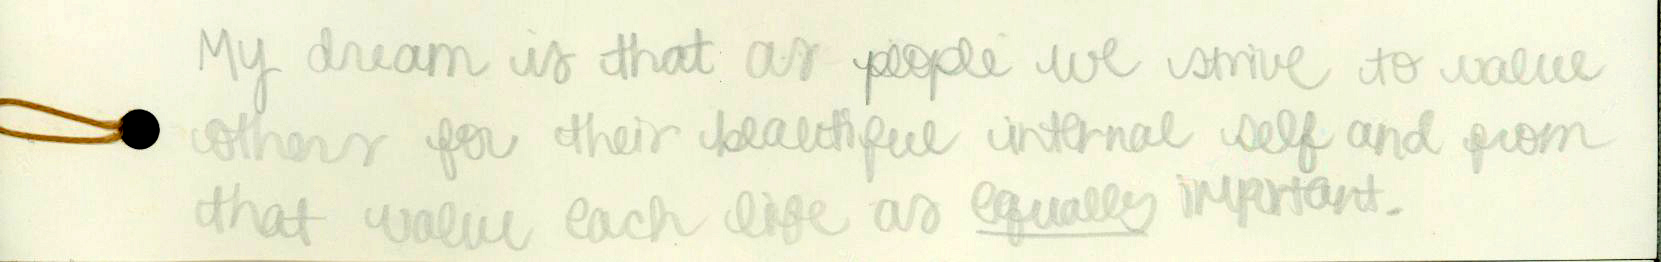 My dream is that as people we strive to value
others for their beautiful internal self and from
that value each life as equally important.